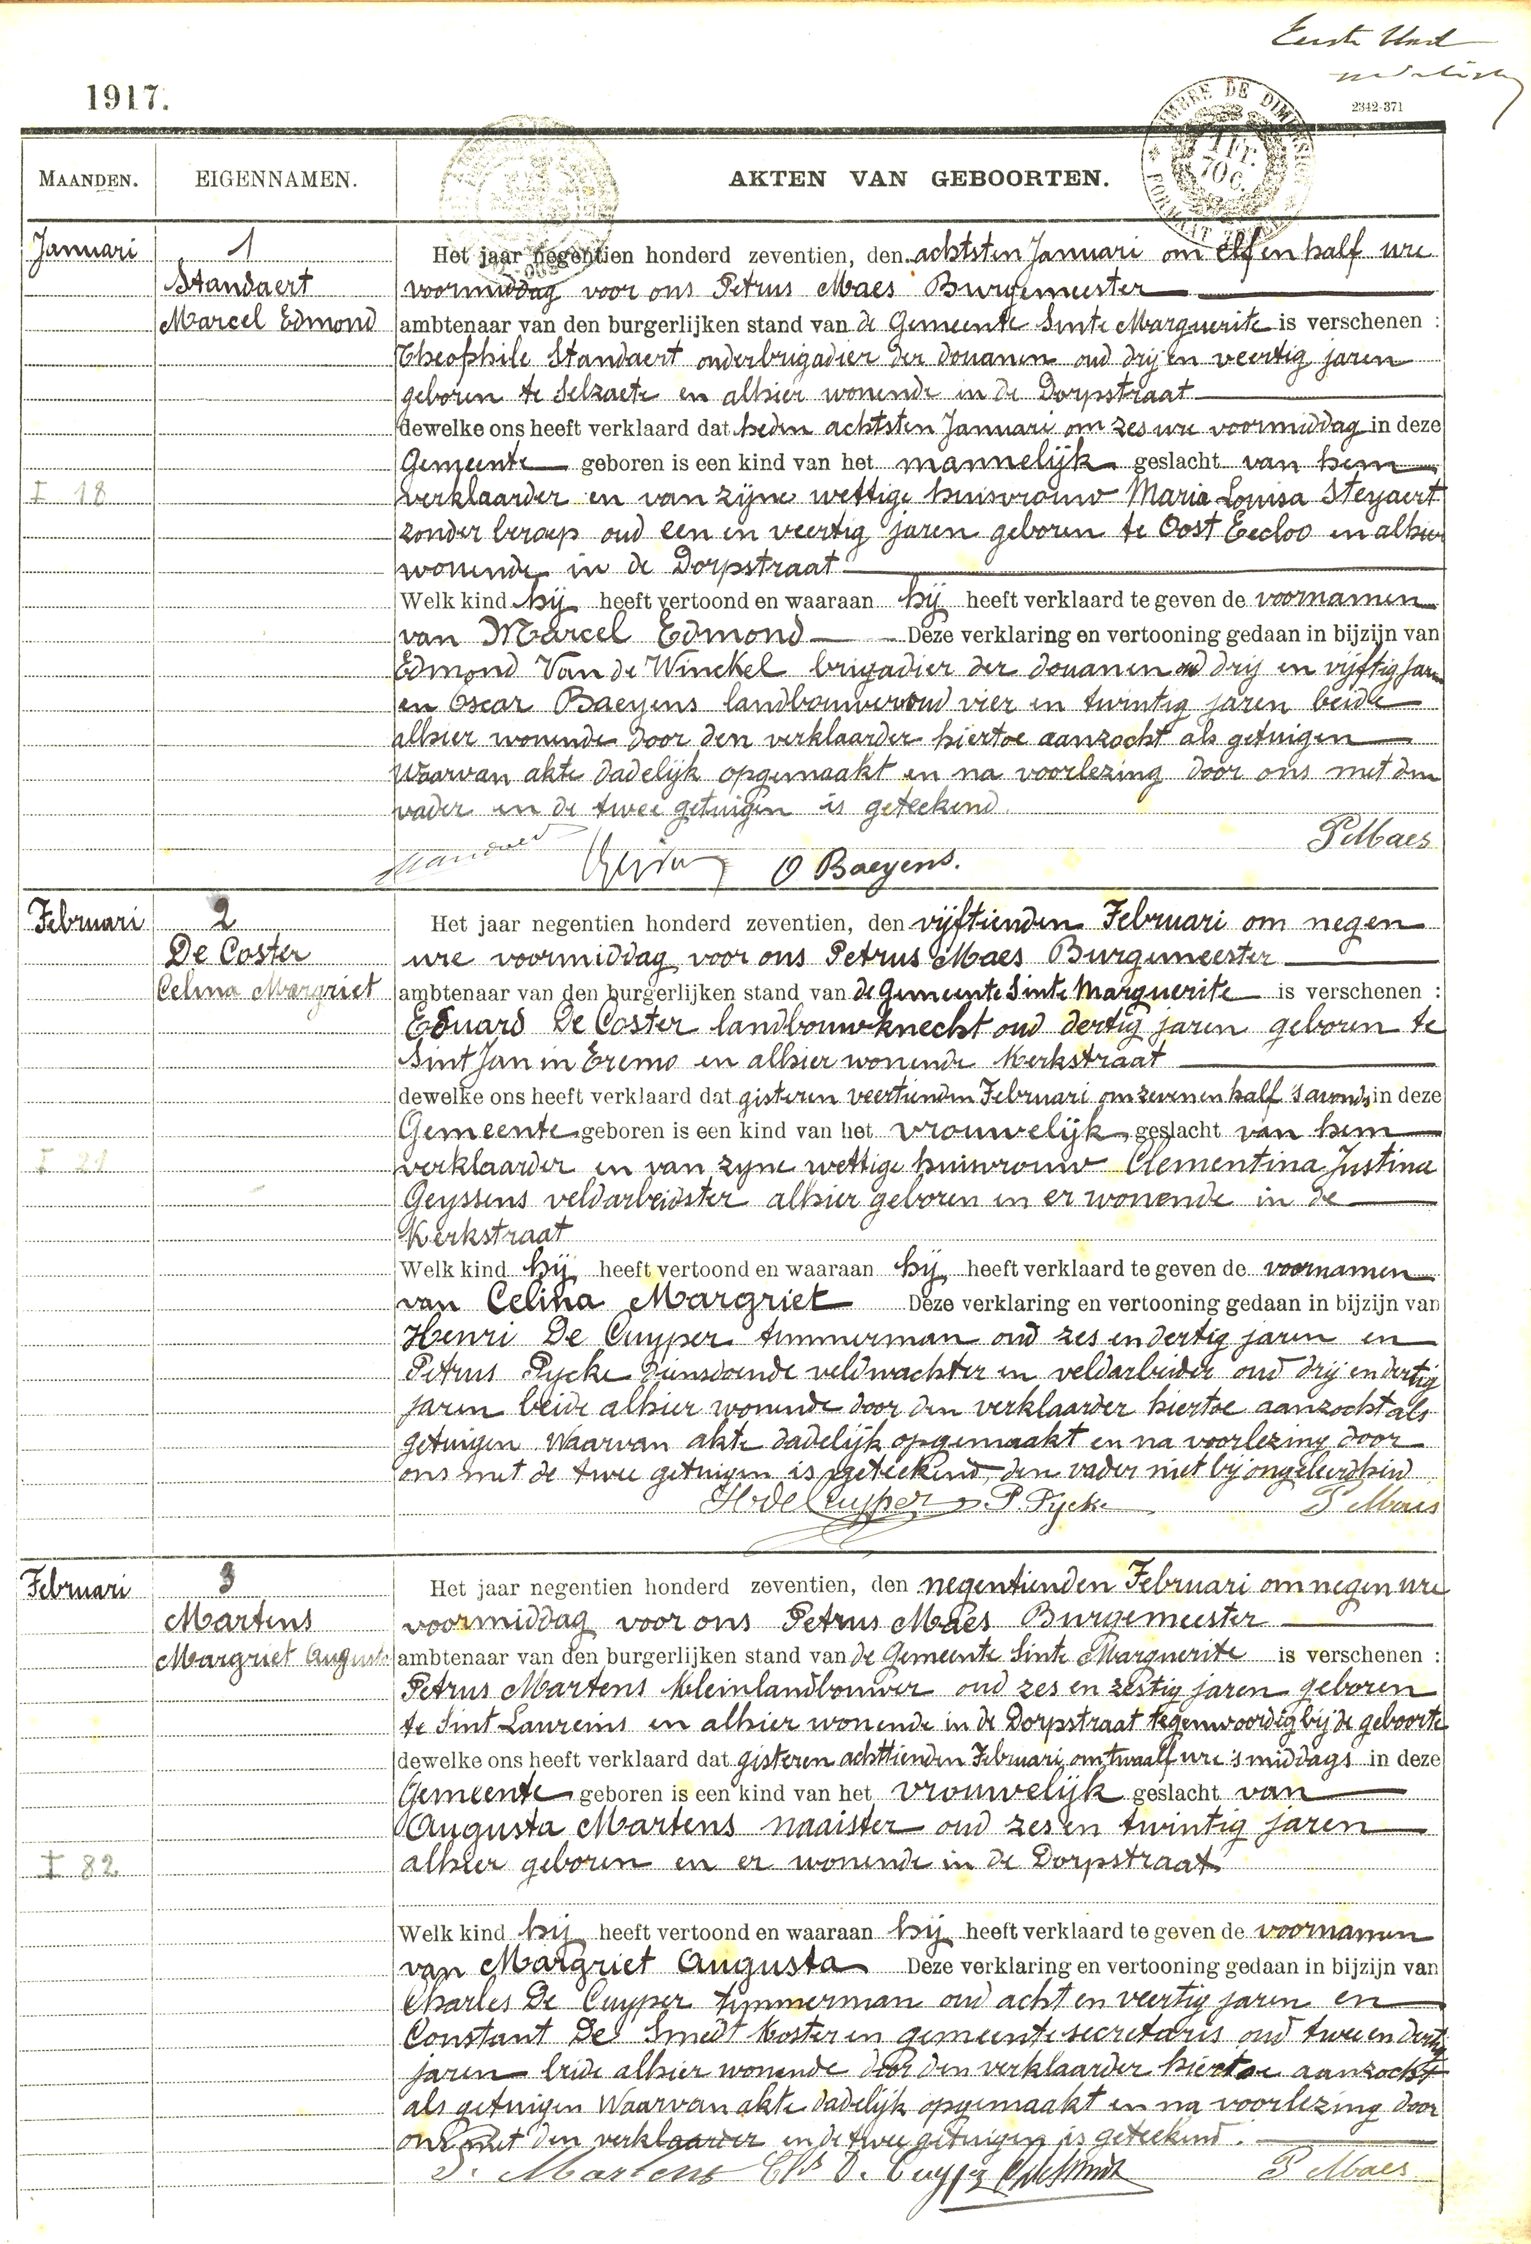 Eerste blad
1917.
2342-371
TIMBRE DE DIMENSION
1 FR.
70 C.
MAANDEN. EIGENNAMEN. AKTEN VAN GEBOORTEN.
Januari 1 Het jaar negentien honderd zeventien, den achtsten Januari om elf en half ure
Standaert voormiddag voor ons Petrus Maes Burgemeester
Marcel Edmond ambtenaar van den burgerlijken stand van de Gemeente Sinte Marguerite is verschenen :
Theophile Standaert onderbrigadier der douanen oud drij en veertig jaren
geboren te Selzaete en alhier wonende in de Dorpstraat
dewelke ons heeft verklaard dat heden achtsten Januari om zes ure voormiddag in deze
Gemeente geboren is een kind van het mannelijk geslacht van hem
I 18 verklaarder en van zijne wettige huisvrouw Maria Louisa Steyaert
zonder beroep oud een en veertig jaren geboren te Oost Eecloo en alhier
wonende in de Dorpstraat
Welk kind hij heeft vertoond en waaraan hij heeft verklaard te geven de voornamen
van Marcel Edmond Deze verklaring en vertooning gedaan in bijzijn van
Edmond Van de Winckel brigadier der douanen oud drij en vijftig jaren
en Oscar Baeyens landbouwer oud vier en twintig jaren beide
alhier wonende door den verklaarder hiertoe aanzocht als getuigen
Waarvan akte dadelijk opgemaakt en na voorlezing door ons met den
vader en de twee getuigen is geteekend.
P Maes
Standaert O Baeyens.
Februari 2 Het jaar negentien honderd zeventien, den vijftienden Februari om negen
De Coster ure voormiddag voor ons Petrus Maes Burgemeester
Celina Margriet ambtenaar van den burgerlijken stand van de Gemeente Sinte Marguerite is verschenen :
Eduard De Coster landbouwknecht oud dertig jaren geboren te
Sint Jan in Eremo en alhier wonende Kerkstraat
dewelke ons heeft verklaard dat gisteren veertienden Februari om zeven en half 's avonds in deze
Gemeente geboren is een kind van het vrouwelijk geslacht van hem
I 21 verklaarder en van zyne wettige huisvrouw Clementina Justina
Geyssens veldarbeidster alhier geboren en er wonende in de
Kerkstraat
Welk kind hij heeft vertoond en waaraan hij heeft verklaard te geven de voornamen
van Celina Margriet Deze verklaring en vertooning gedaan in bijzijn van
Henri De Cuyper timmerman oud zes en dertig jaren en
Petrus Pycke diensdoende veldwachter en veldarbeider oud drij en dertig
jaren beide alhier wonende door den verklaarder hiertoe aanzocht als
getuigen Waarvan akte dadelijk opgemaakt en na voorlezing door
ons met de twee getuigen is geteekend, den vader niet bij ongeleerdheid
H. de Cuyper P. Pycke P Maes
Februari 3 Het jaar negentien honderd zeventien, den negentienden Februari om negen ure
Martens voormiddag voor ons Petrus Maes Burgemeester
Margriet Augusta ambtenaar van den burgerlijken stand van de Gemeente Sinte Marguerite is verschenen :
Petrus Martens Kleinlandbouwer oud zes en zestig jaren geboren
te Sint Laureins en alhier wonende in de Dorpstraat tegenwoordig bij de geboorte
dewelke ons heeft verklaard dat gisteren achttienden Februari om twaalf ure 's middags in deze
Gemeente geboren is een kind van het vrouwelijk geslacht van
Augusta Martens naaister oud zes en twintig jaren
I 82 alhier geboren en er wonende in de Dorpstraat
Welk kind hij heeft vertoond en waaraan hij heeft verklaard te geven de voornamen
van Margriet Augusta Deze verklaring en vertooning gedaan in bijzijn van
Charles De Cuyper timmerman oud acht en veertig jaren en
Constant De Smedt Koster en gemeente secretaris oud twee en dertig
jaren beide alhier wonende door den verklaarder hiertoe aanzocht
als getuigen Waarvan akte dadelijk opgemaakt en na voorlezing door
ons met den verklaarder en de twee getuigen is geteekend.
P. Martens Chs D. Cuyper C De Smedt P Maes